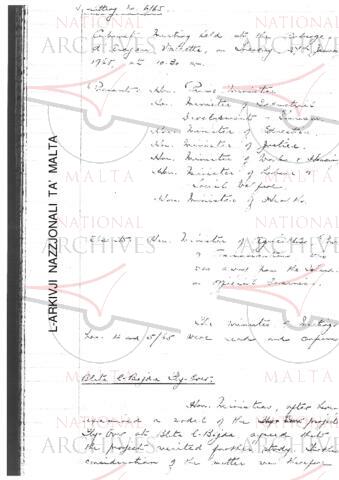 Sitting No. 6/65.
Cabinet Meeting held at the Auberge
d'Aragon Valletta, on
1965 at 10.30 am.
Present: Hon. Prime Minister
Hon. Minister of Industrial
Development & Finance
Hon. Minister of Education
Hon. Minister of Justice.
Hon. Minister of Works & Housing
Hon. Minister of Labour &
Social Welfare
Hon. Minister of Health.
Hon. Minister of
was away from the Island
on Official Business.
The minutes of Meetings
Nos. 4 and 5/65 were read and
Blata l-Bajda Fly-Over.
Hon. Ministers, after having
examined a model of the project
Fly-Over at Blata l-Bajda agreed that
the project merited further study.
consideration of the matter was therefore
L-ARKIVJI NAZZJONALI TA' MALTA
NATIONAL
ARCHIVES
MALTA